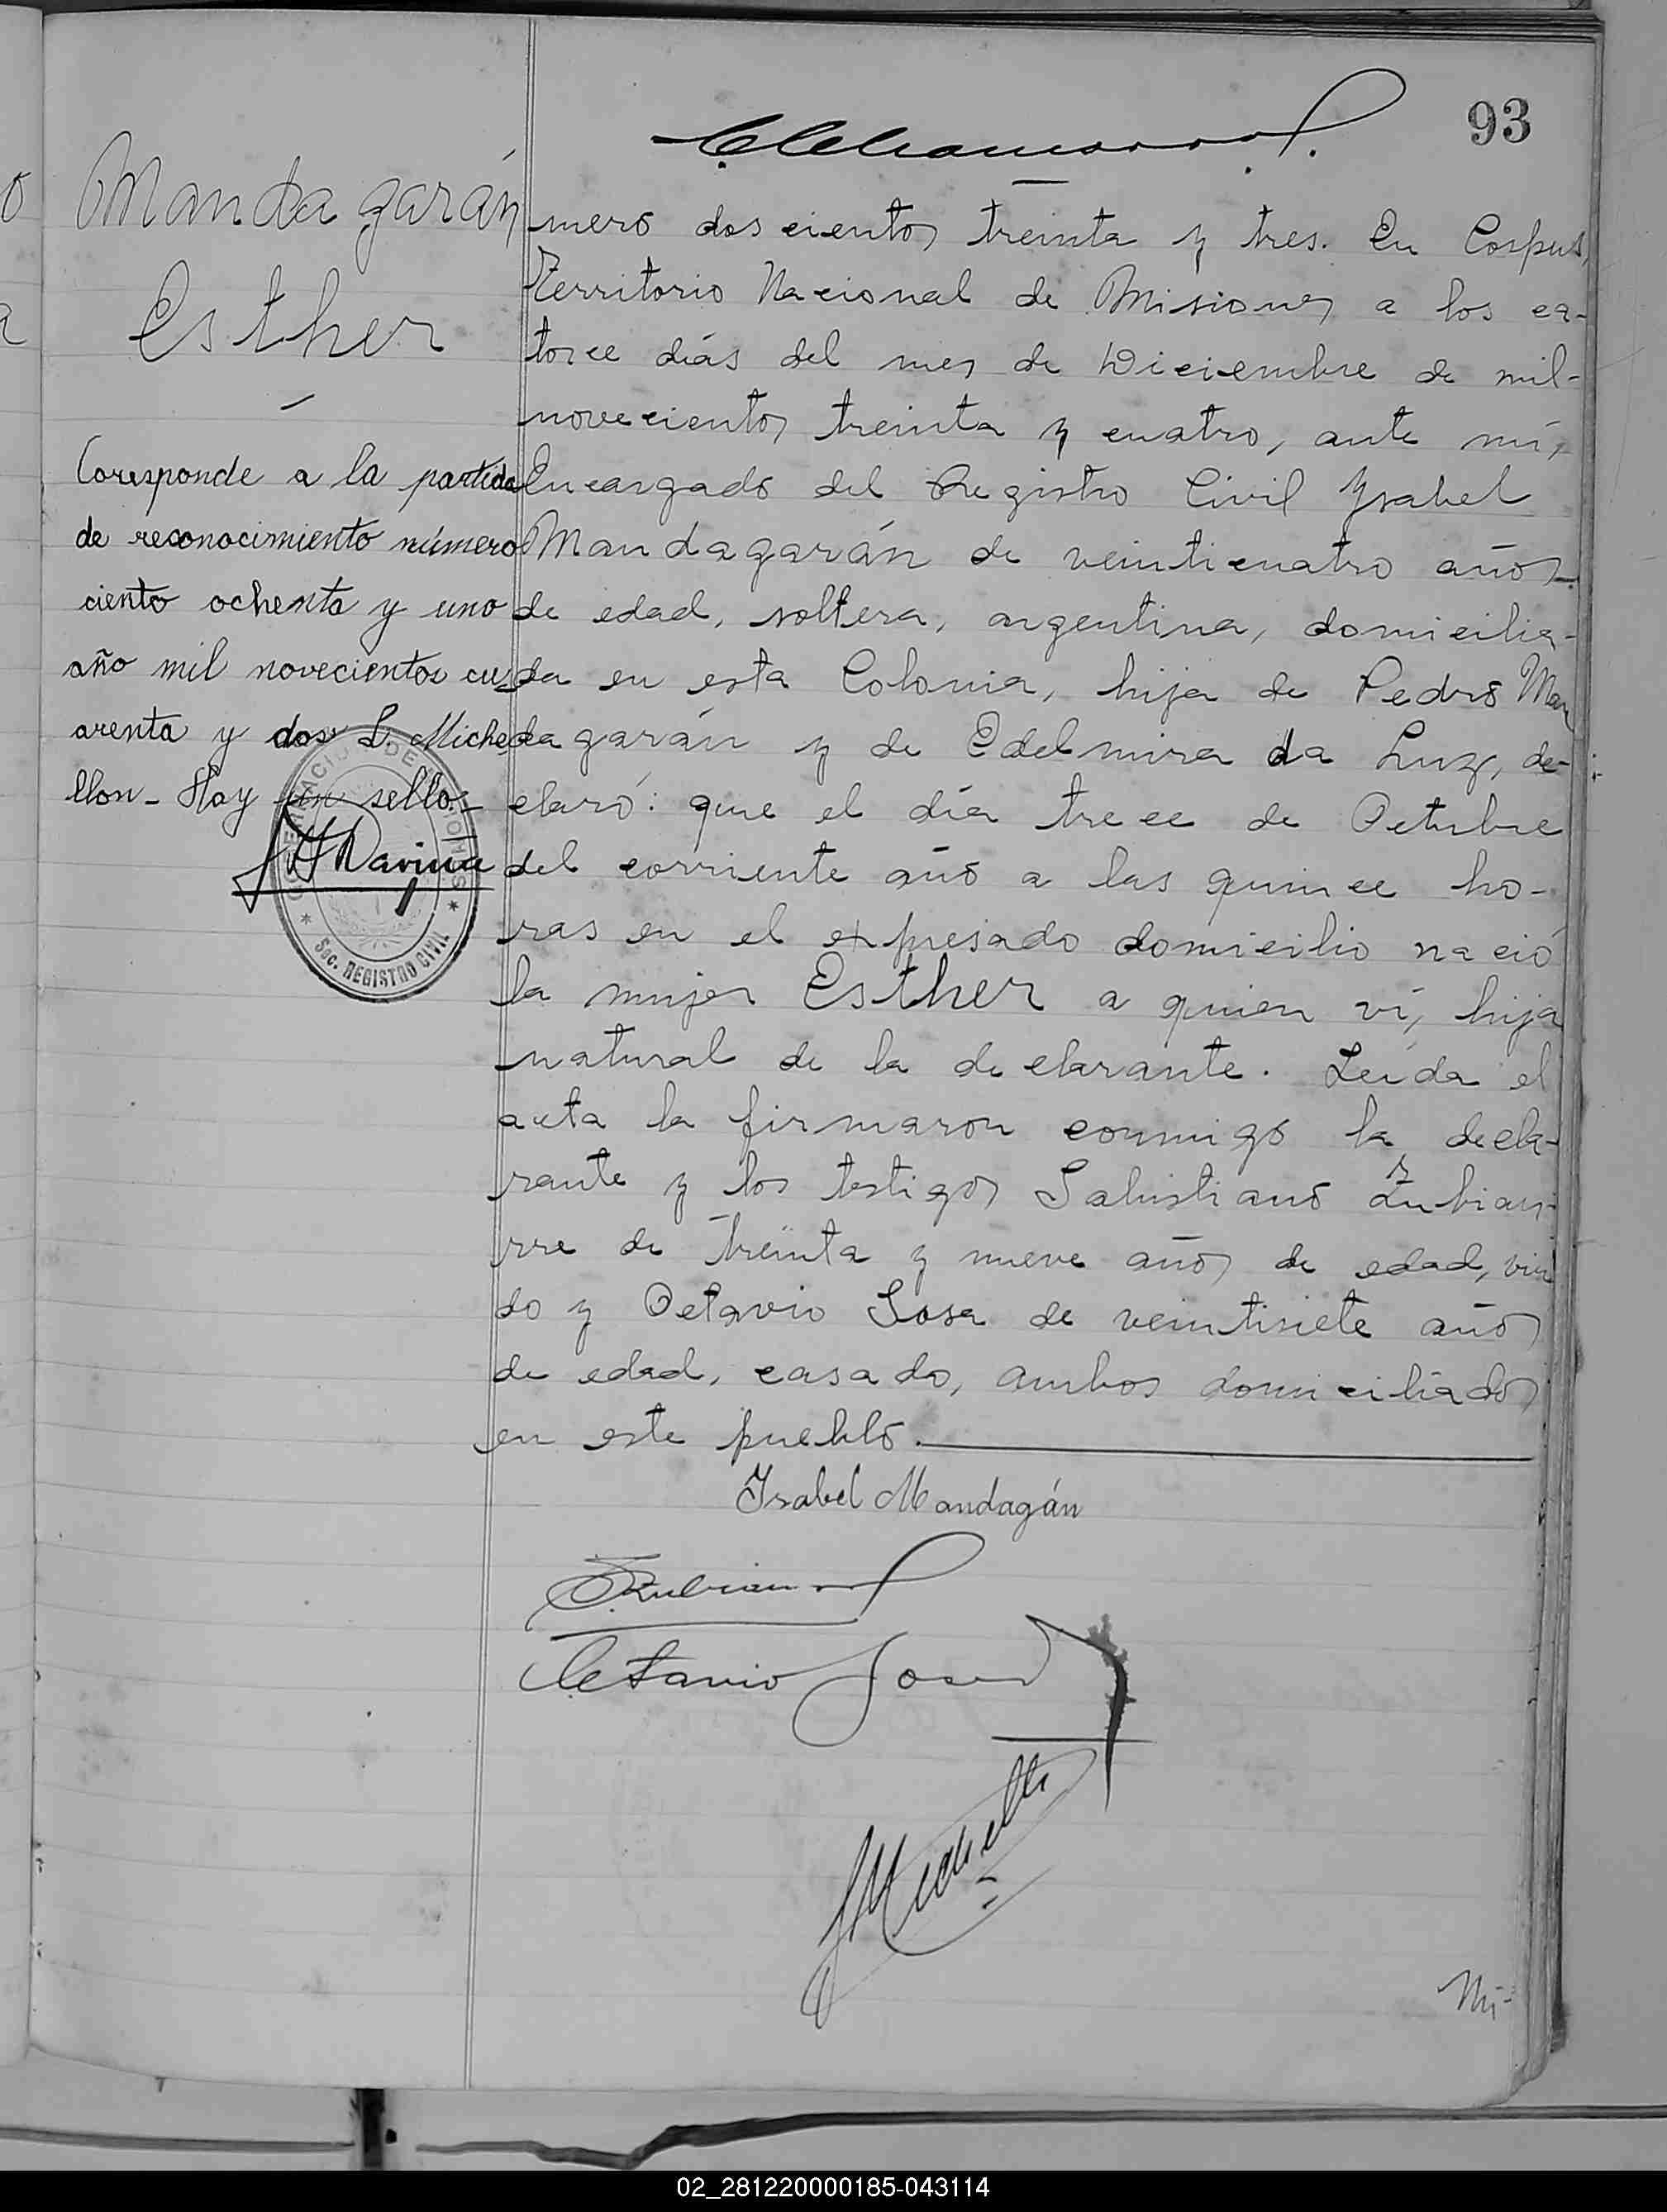 93
Mandagarán
Esther
Coresponde a la partida
de reconocimiento número
ciento ochenta y uno
año mil novecientos cu-
arenta y dos L. Miche
llon - Hay un sello -
GOBERNACION DE MISIONES
Sec. REGISTRO CIVIL
mero doscientos treinta y tres. En Corpus,
Territorio Nacional de Misiones a los ca-
torce días del mes de Diciembre de mil-
novecientos treinta y cuatro, ante mí,
Encargado del Registro Civil Ysabel
Mandagarán de veinticuatro años
de edad, soltera, argentina, domicilia-
da en esta Colonia, hija de Pedro Man
dagarán y de Edelmira da Luz, de-
claró: que el día trece de Octubre
del corriente año a las quince ho-
ras en el expresado domicilio nació
la mujer Esther a quien ví, hija
natural de la declarante. Leída el
acta la firmaron conmigo la decla-
rante y los testigos Salustiano Zubiau-
rre de treinta y nueve años de edad, viu
do y Octavio Sosa de veintisiete años
de edad, casado, ambos domiciliados
en este pueblo.
Isabel Mandagán
Octavio Sosa
Nú-
02_281220000185-043114